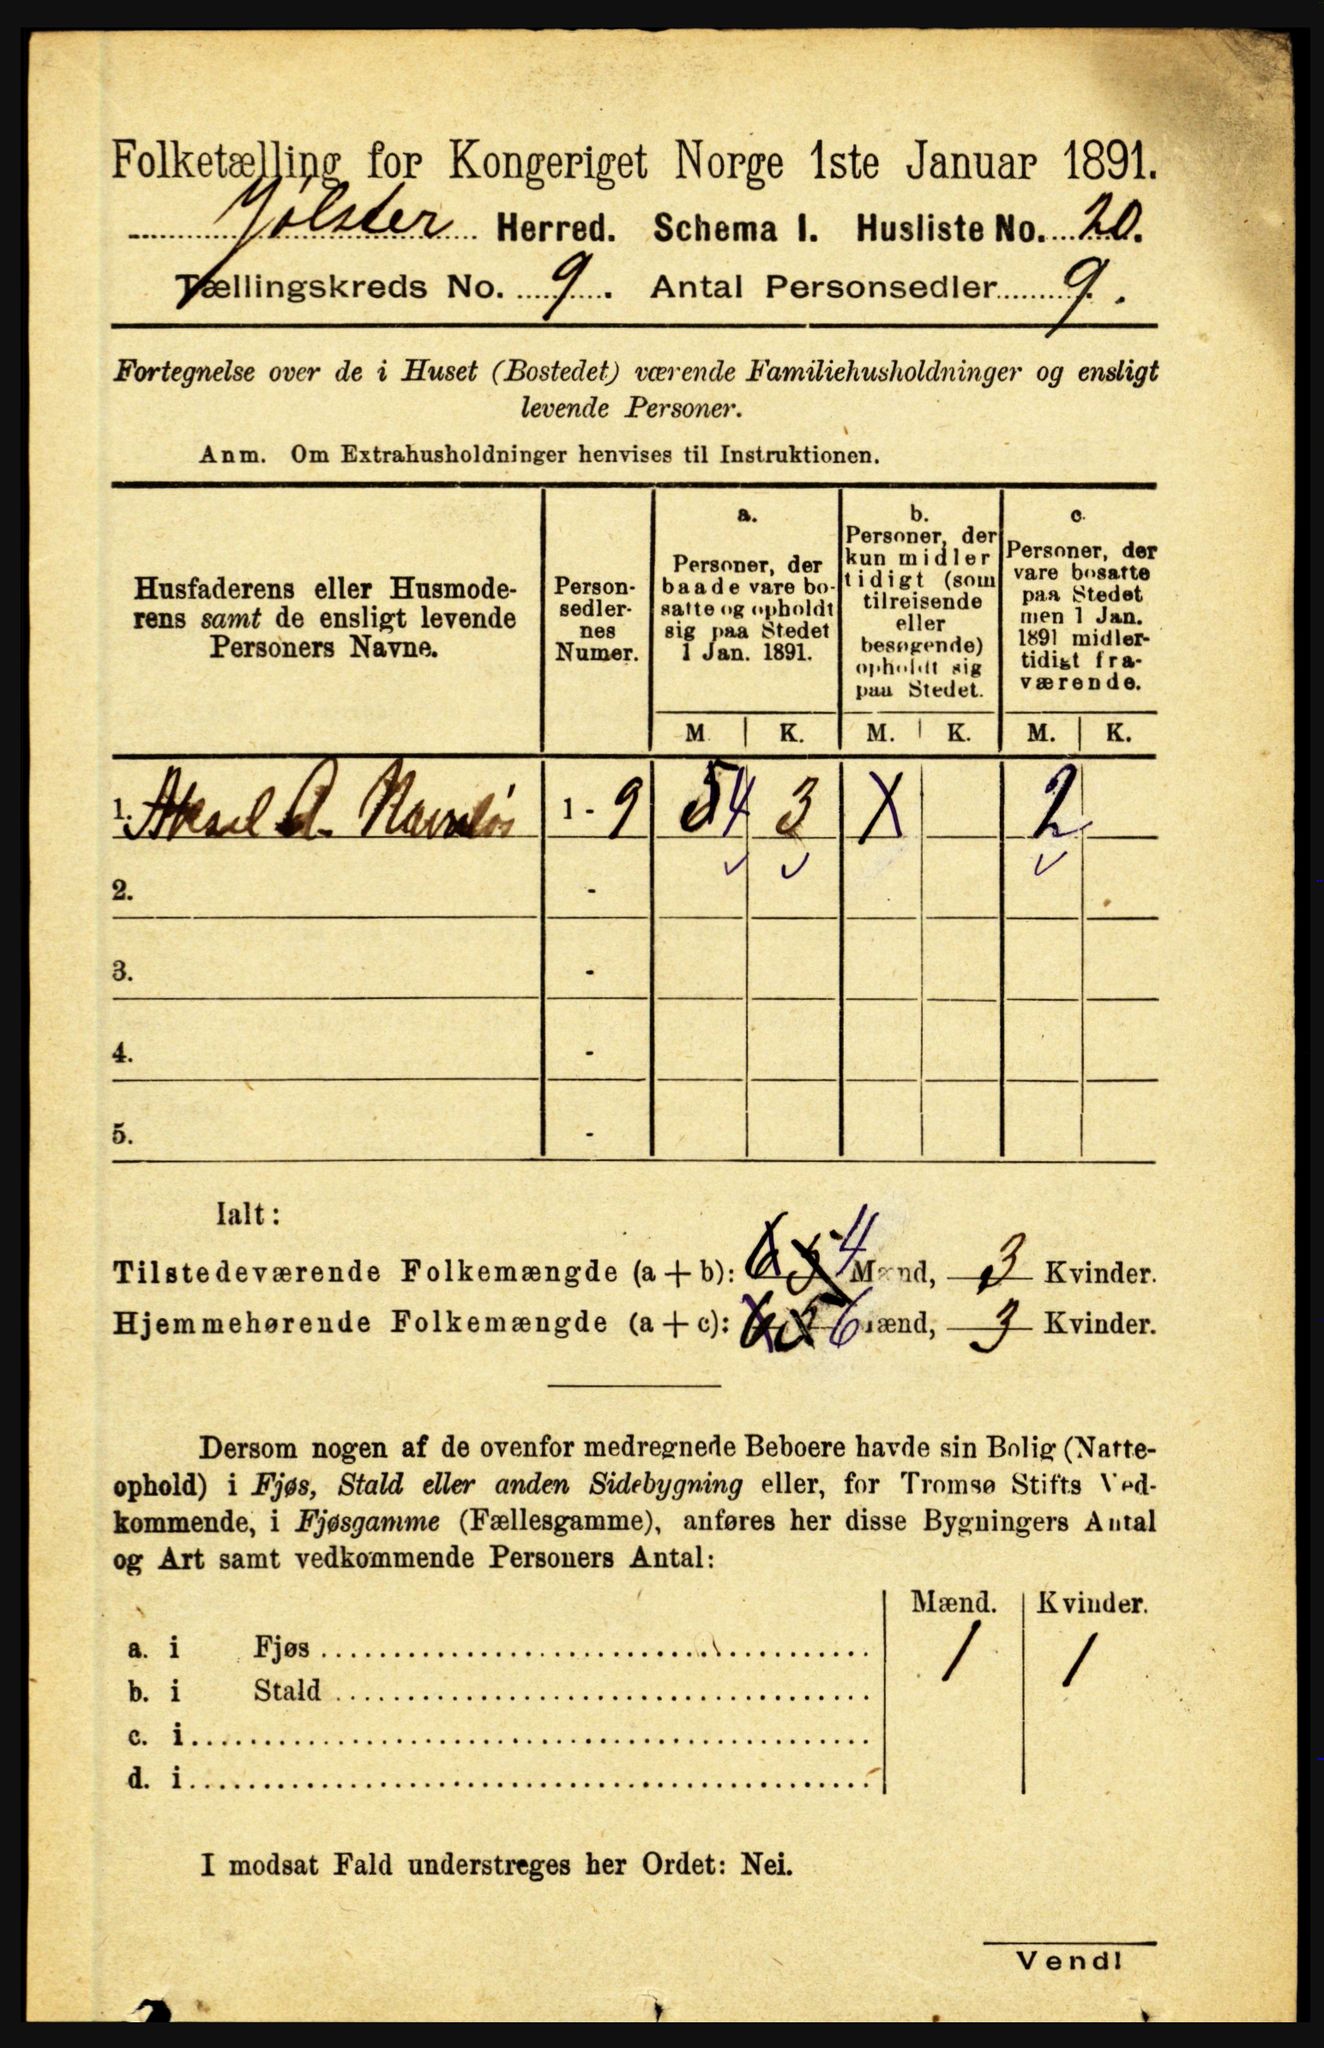 Folketælling for Kongeriget Norge 1ste Januar 1891.
Jølster Herred. Schema I. Husliste No. 20.
Tællingskreds No. 9. Antal Personsedler 9.
Fortegnelse over de i Huset (Bostedet) værende Familiehusholdninger og ensligt
levende Personer.
Anm. Om Extrahusholdninger henvises til Instruktionen.
Husfaderens eller Husmode-
rens samt de ensligt levende
Personers Navne.
Person-
sedler-
nes
Numer.
a.
Personer, der
baade vare bo-
satte og opholdt
sig paa Stedet
1 Jan. 1891.
b.
Personer, der
kun midler
tidigt (som
tilreisende
eller
besøgende)
opholdt sig
paa Stedet.
c.
Personer, der
vare bosatte
paa Stedet
men 1 Jan.
1891 midler-
tidigt fra-
værende.
M. K. M. K. M. K.
1. Aksel A. 1 - 9 5 4 3 X 2
2. -
3. -
4. -
5. -
Ialt:
Tilstedeværende Folkemængde (a + b): 6 5 4 Mænd, 3 Kvinder.
Hjemmehørende Folkemængde (a + c): 6 Mænd, 3 Kvinder.
Dersom nogen af de ovenfor medregnede Beboere havde sin Bolig (Natte-
ophold) i Fjøs, Stald eller anden Sidebygning eller, for Tromsø Stifts Ved-
kommende, i Fjøsgamme (Fællesgamme), anføres her disse Bygningers Antal
og Art samt vedkommende Personers Antal:
Mænd. Kvinder.
a. i Fjøs 1 1
b. i Stald
c. i
d. i
I modsat Fald understreges her Ordet: Nei.
Vend!